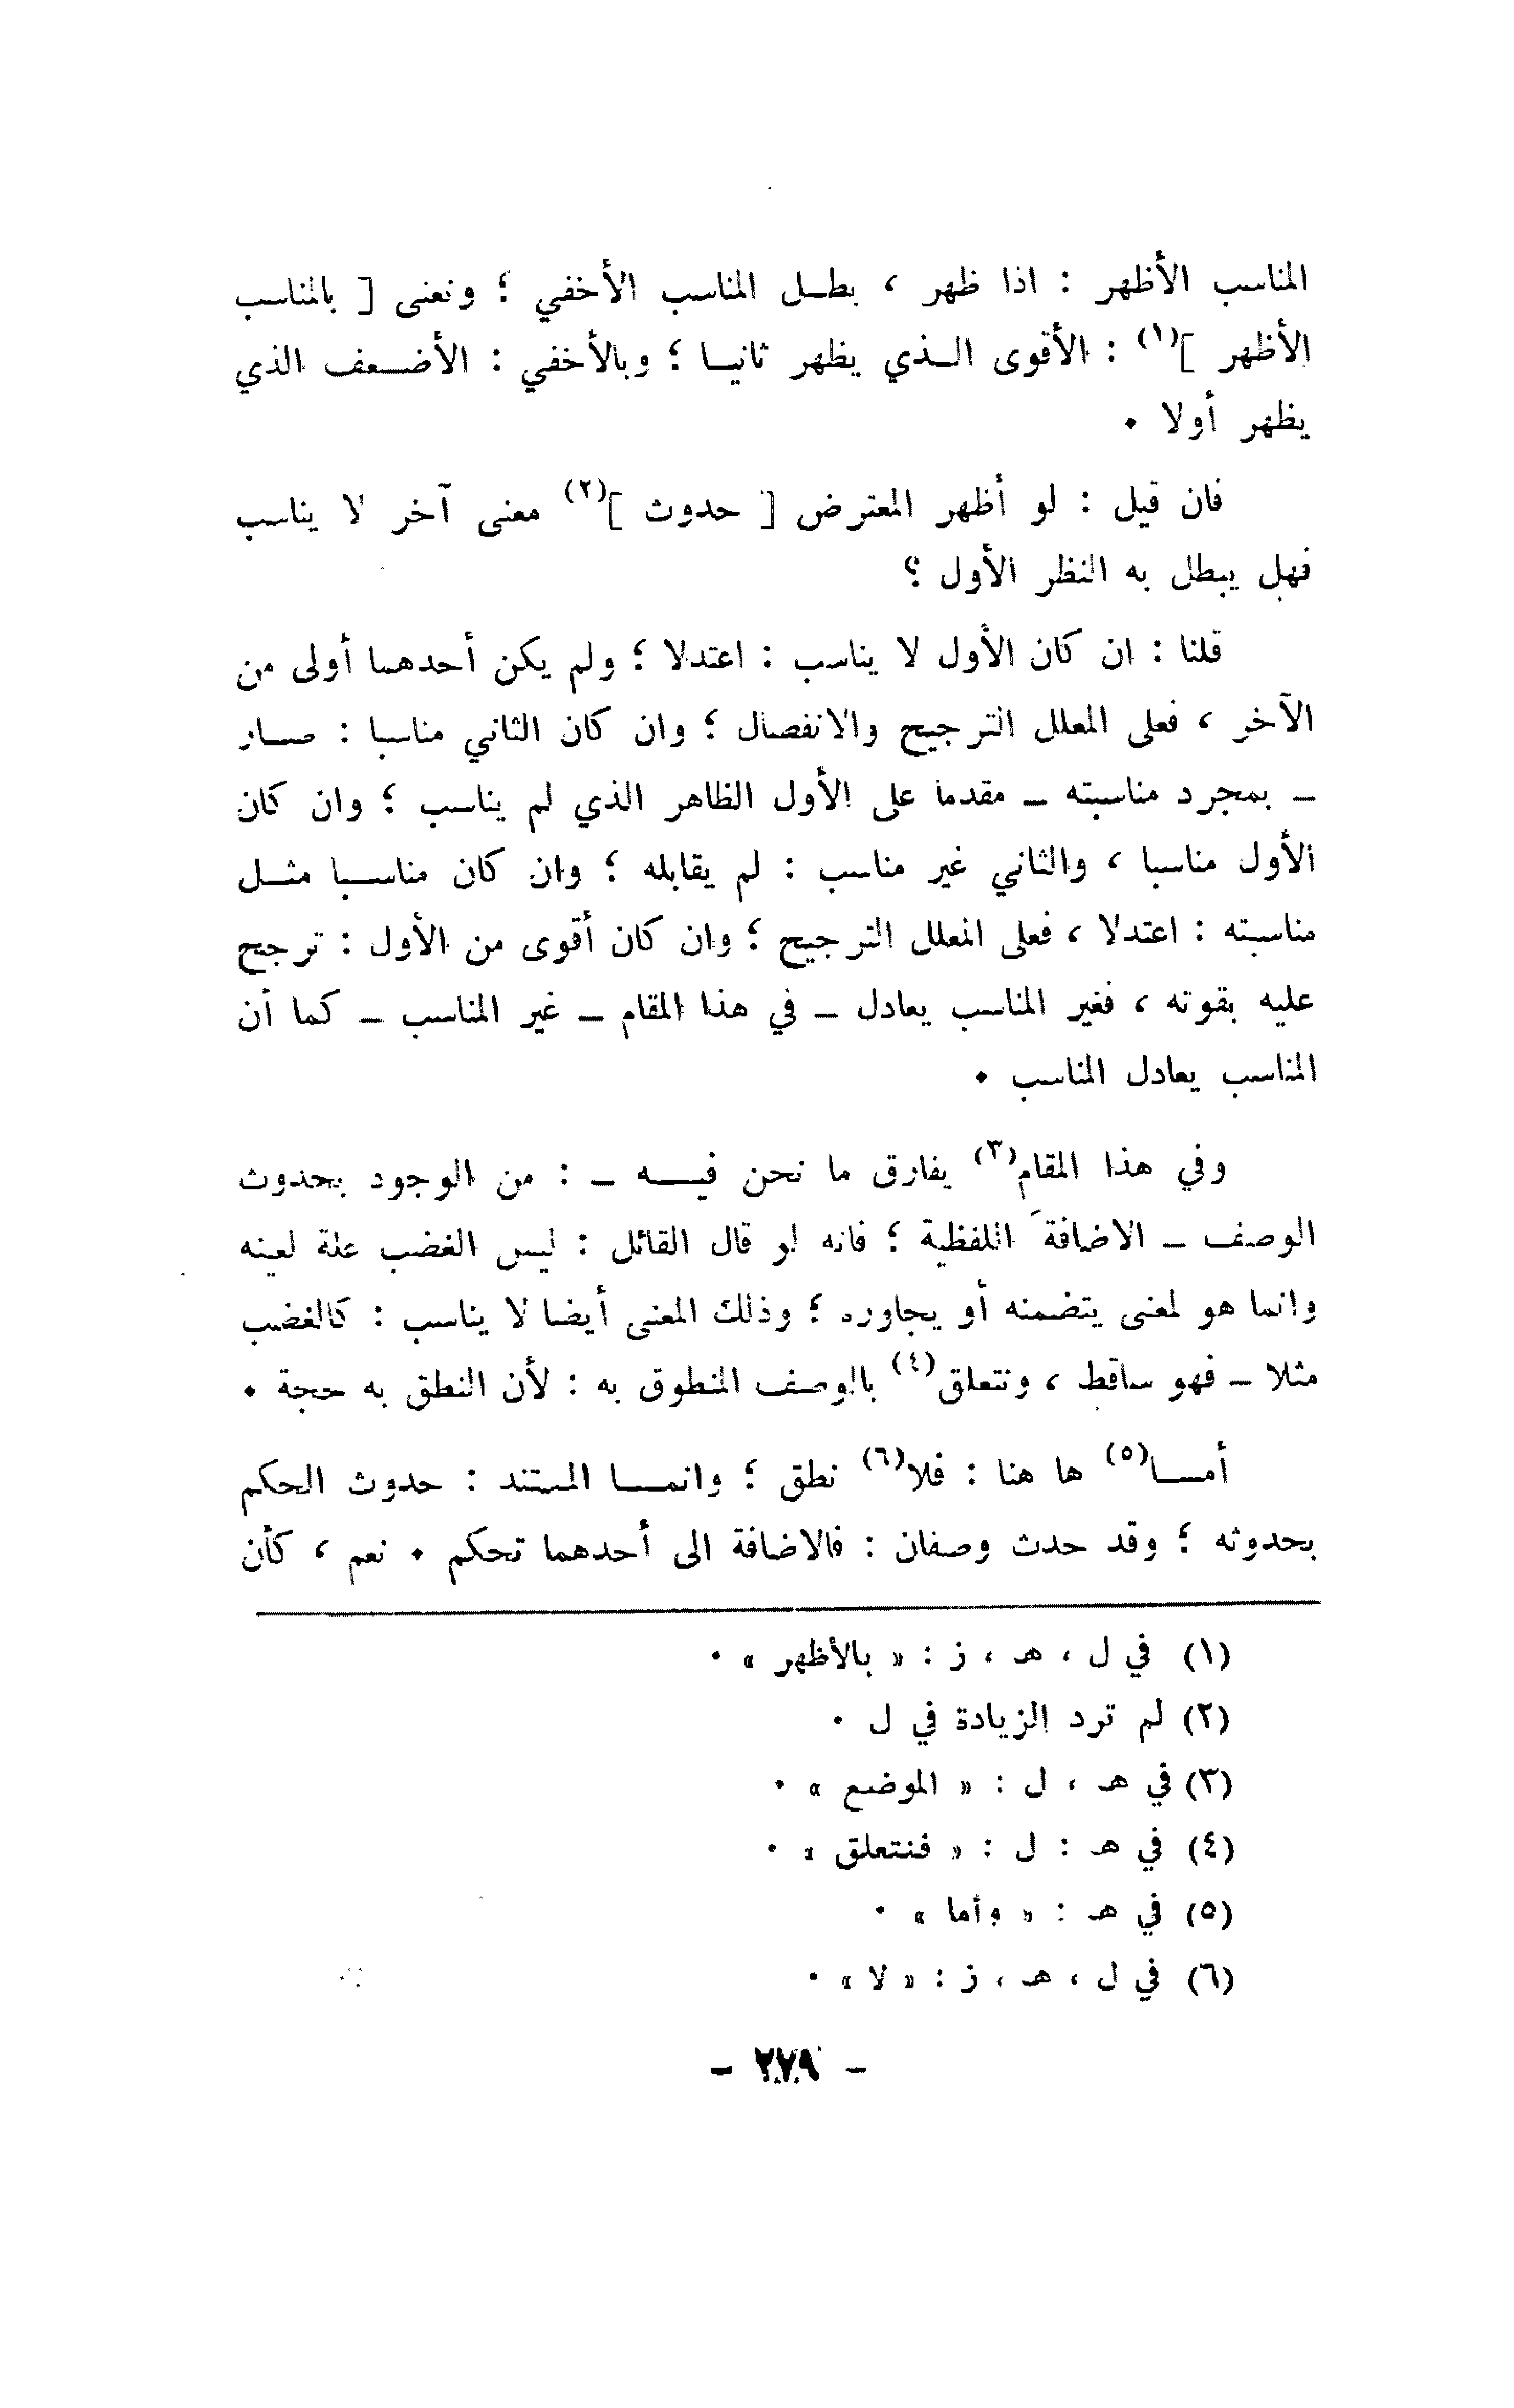 المناسب الأظهر : اذا ظهر ، بطل المناسب الأخفي ؛ ونعنى [ بالمناسب
الأظهر ](١) : الأقوى الذي يظهر ثانيا ؛ وبالأخفي : الأضعف الذي
يظهر أولا .
فان قيل : لو أظهر المعترض [ حدوث ](٢) معنى آخر لا يناسب
فهل يبطل به النظر الأول ؟
قلنا : ان كان الأول لا يناسب : اعتدلا ؛ ولم يكن أحدهما أولى من
الآخر ، فعلى المعلل الترجيح والانفصال ؛ وان كان الثاني مناسبا : صار
ـ بمجرد مناسبته ـ مقدما على الأول الظاهر الذي لم يناسب ؛ وان كان
الأول مناسبا ، والثاني غير مناسب : لم يقابله ؛ وان كان مناسبا مثل
مناسبته : اعتدلا ، فعلى المعلل الترجيح ؛ وان كان أقوى من الأول : ترجح
عليه بقوته ، فغير المناسب يعادل ـ في هذا المقام ـ غير المناسب ـ كما أن
المناسب يعادل المناسب .
وفي هذا المقام(٣) يفارق ما نحن فيه ـ : من الوجود بحدوث
الوصف ـ الاضافة اللفظية ؛ فانه لو قال القائل : ليس الغضب علة لعينه
وانما هو لمعنى يتضمنه أو يجاوره ؛ وذلك المعنى أيضا لا يناسب : كالغضب
مثلا ـ فهو ساقط ، ونتعلق(٤) بالوصف المنطوق به : لأن النطق به حجة .
أما(٥) ها هنا : فلا(٦) نطق ؛ وانما المستند : حدوث الحكم
بحدوثه ؛ وقد حدث وصفان : فالاضافة الى أحدهما تحكم . نعم ، كأن
(١) في ل ، هـ ، ز : « بالأظهر » .
(٢) لم ترد الزيادة في ل .
(٣) في هـ ، ل : « الموضع » .
(٤) في هـ : ل : « فنتعلق » .
(٥) في هـ : « وأما » .
(٦) في ل ، هـ ، ز : « لا » .
- ٢٧٩ -